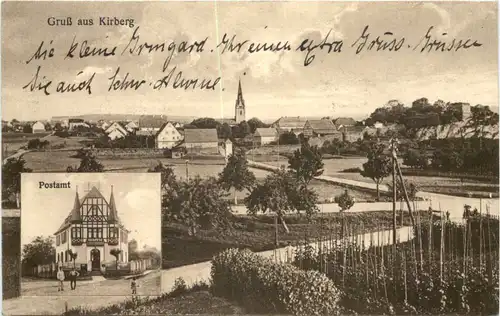 Gruß aus Kirberg
Die kleine Irmgard. Ihr einen extra Gruss. Grüssen
Sie auch Schw. Alwine.
Postamt